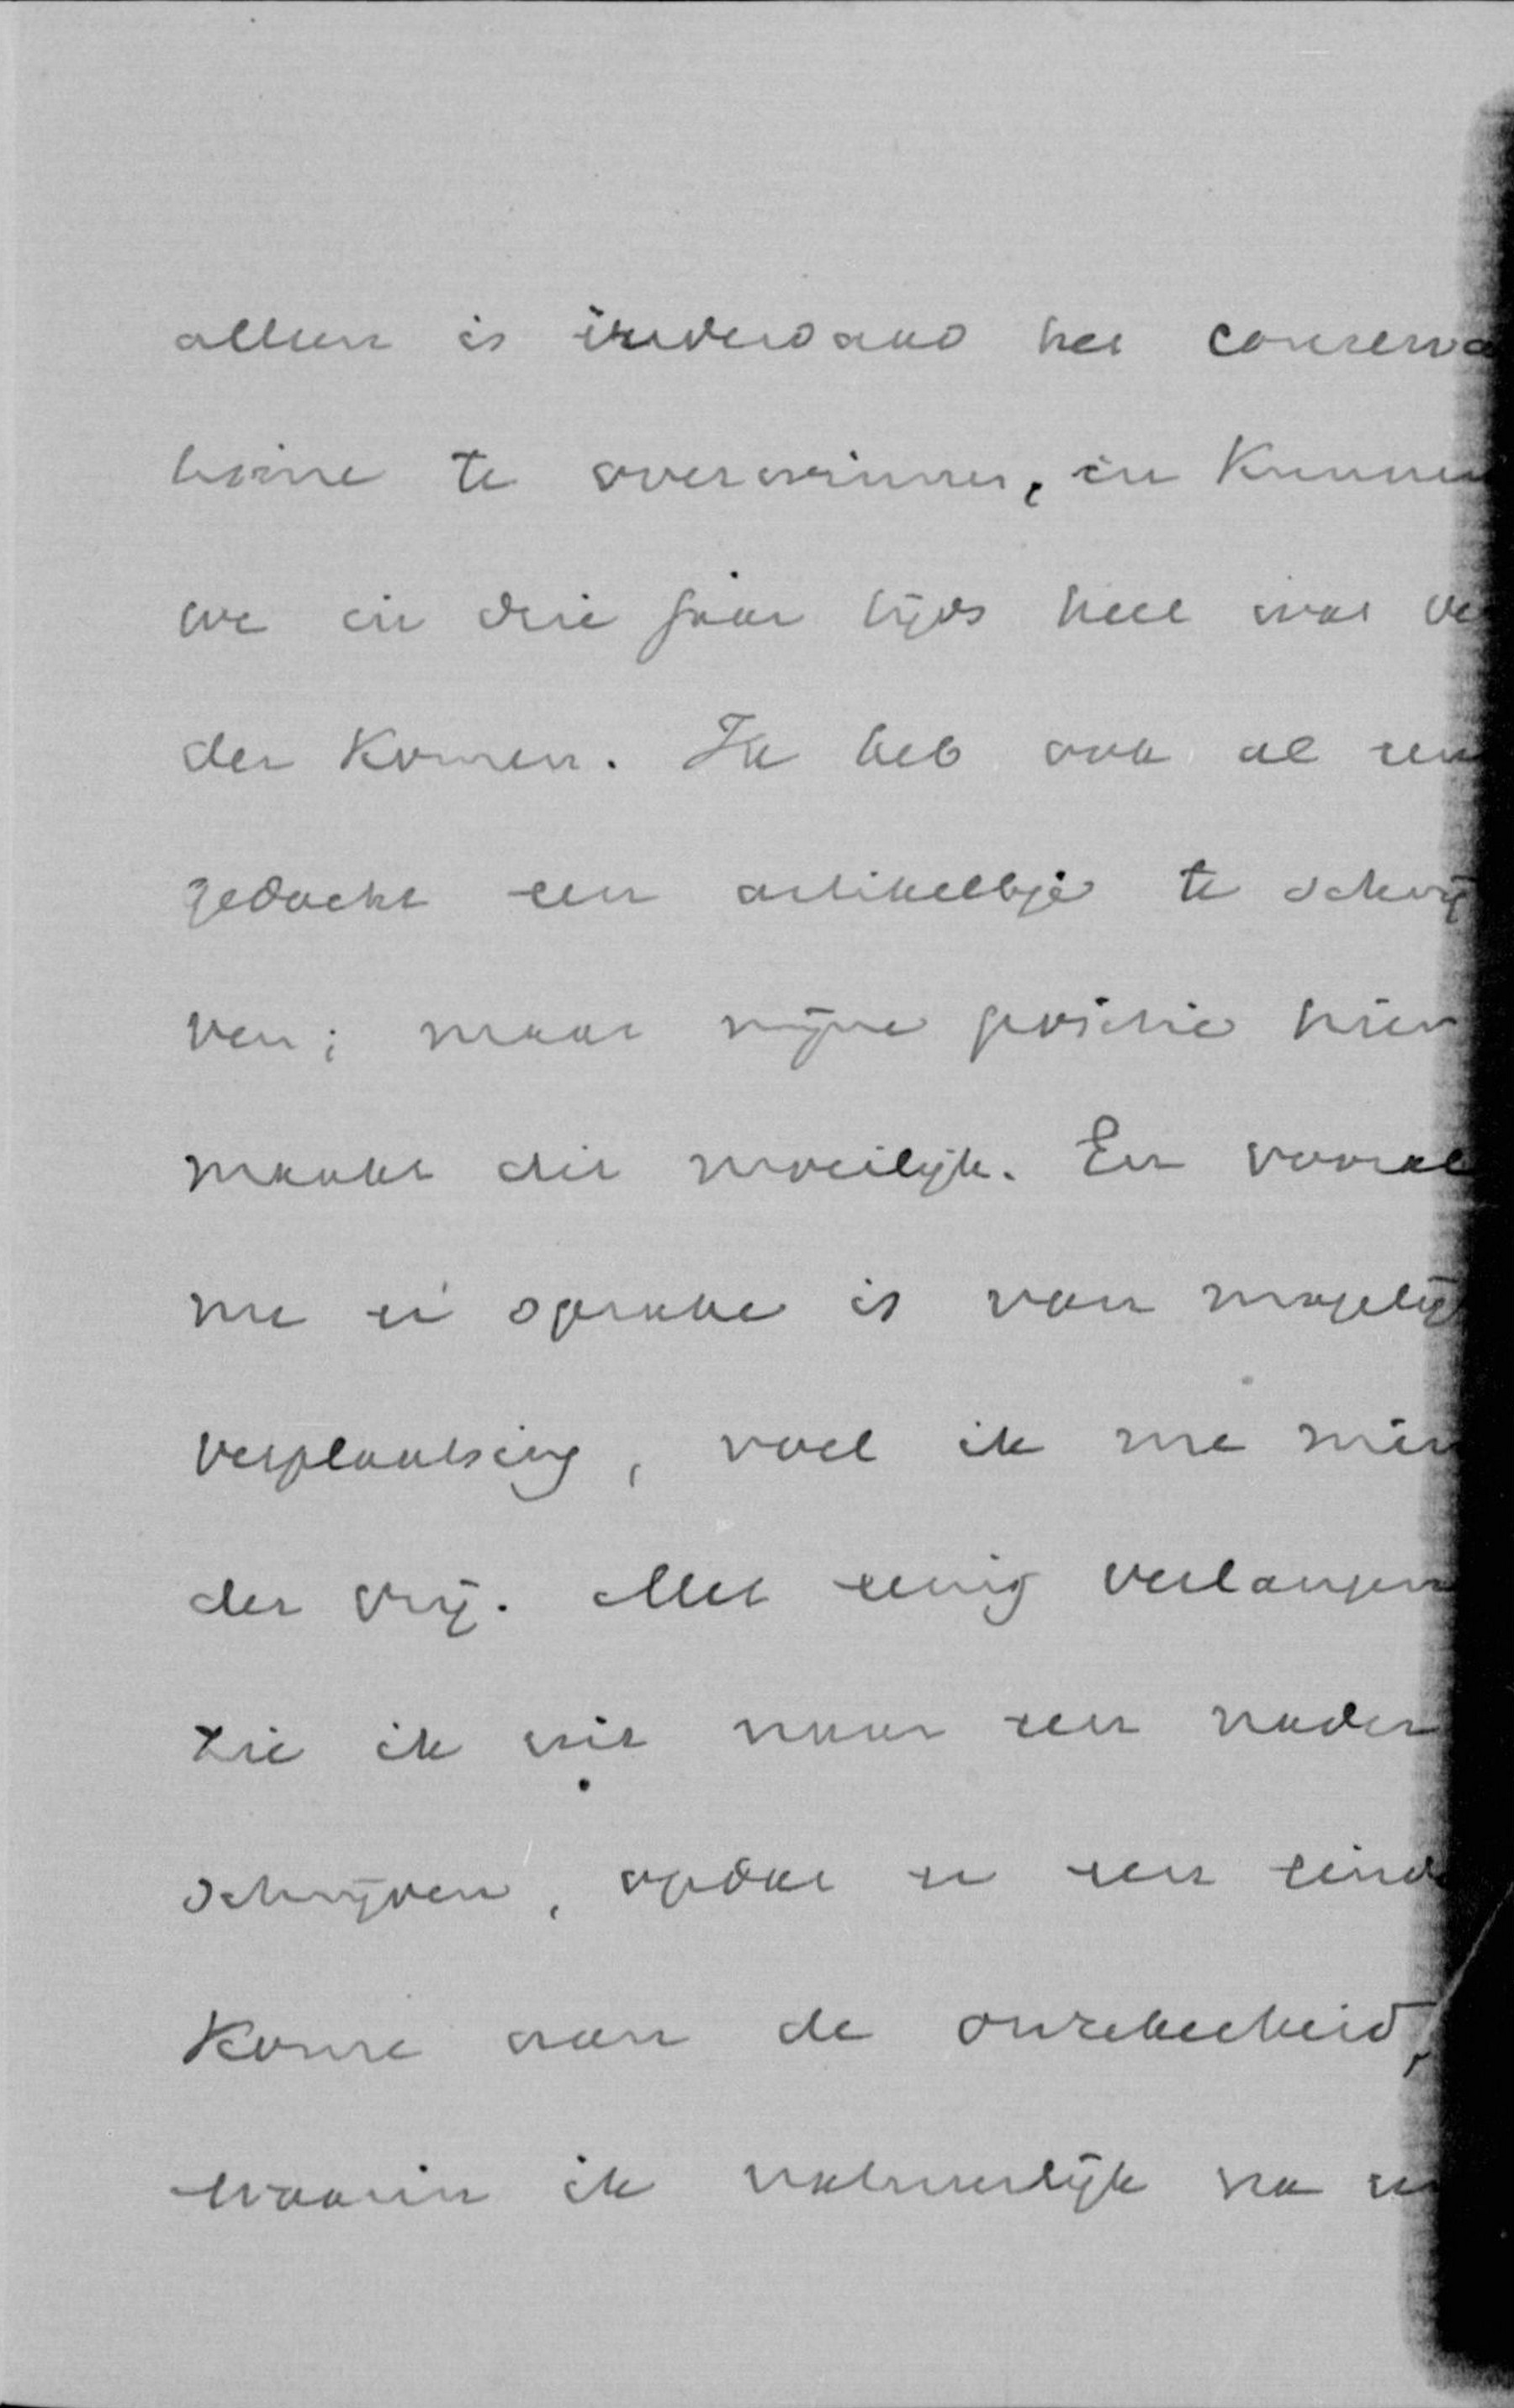 alleen is inderdaad het conserva
tisme te overwinnen, en kunnen
we in drie jaar tijds heel wat ver
der komen. Ik heb ook al een
gedacht een artikeltje te schrij
ven; maar mijne positie hier
maakt dit moeilijk. En vooral
nu er sprake is van mogelijke
verplaatsing, voel ik me min
der vrij. Met eenig verlangen
zie ik uit naar een nader
schrijven, opdat er een einde
kome aan de onzekerheid,
waarin ik natuurlijk na